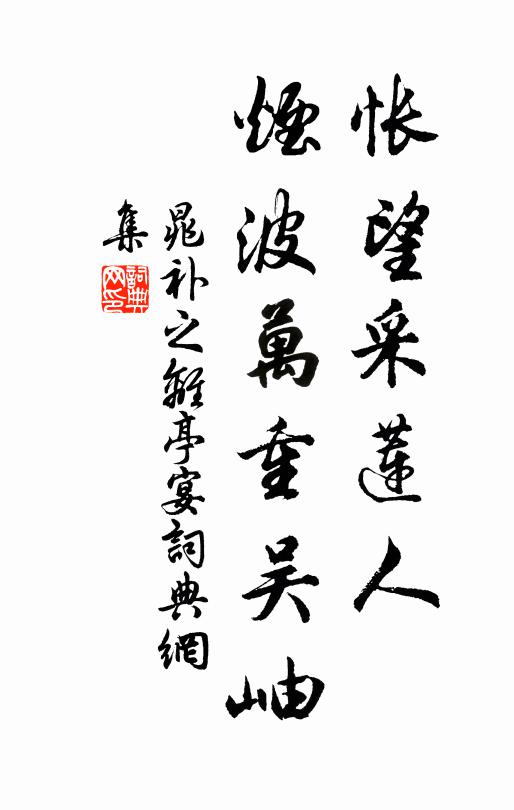 悵望采蓮人
煙波萬重吳岫
晁补之離亭宴詞典網
集
詞典
网印